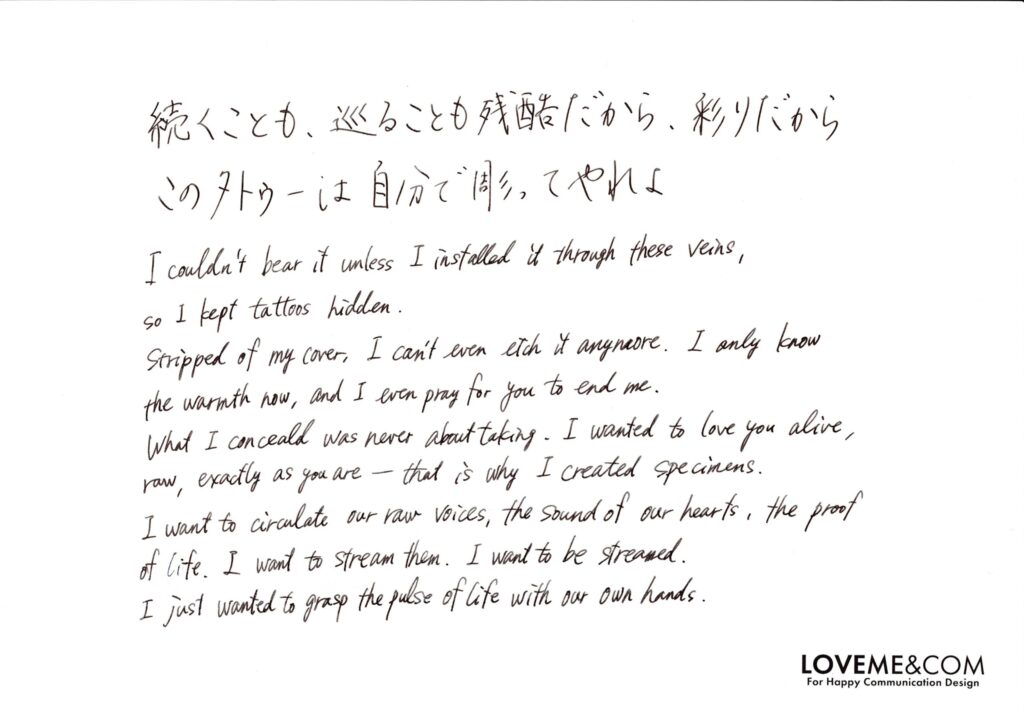 続くことも、巡ることも残酷だから、彩りだから
このタトゥーは自分で彫ってやれよ
I couldn't bear it unless I installed it through these veins,
so I kept tattoos hidden.
Stripped of my cover, I can't even etch it anymore. I only know
the warmth now, and I even pray for you to end me.
What I conceald was never about taking. I wanted to love you alive,
raw, exactly as you are — that is why I created specimens.
I want to circulate our raw voices, the sound of our hearts, the proof
of life. I want to stream them. I want to be streamed.
I just wanted to grasp the pulse of life with our own hands.
LOVEME&COM
For Happy Communication Design